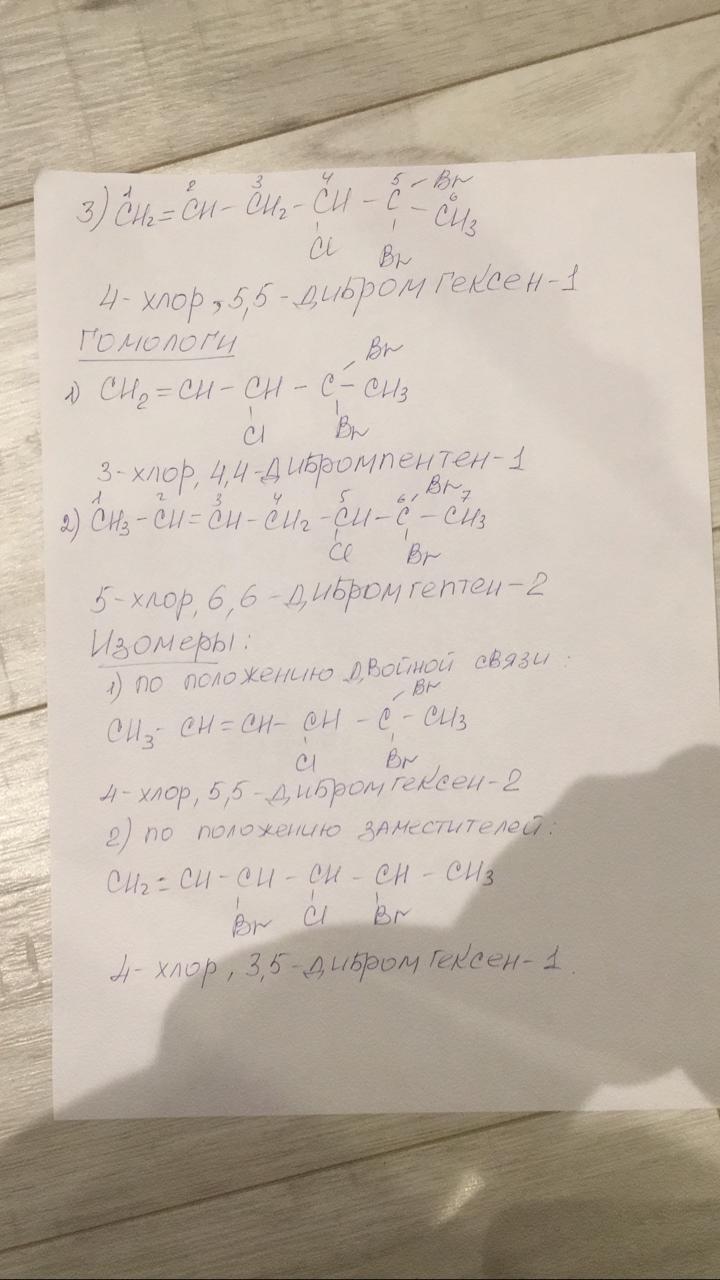 1 2 3 4 5 Br
3) CH₂=CH-CH₂-CH-C-CH₃ 6
Cl Br
4-хлор, 5,5-дибромгексен-1
Гомологи
Br
1) CH₂=CH-CH-C-CH₃
Cl Br
3-хлор, 4,4-дибромпентен-1
1 2 3 4 5 6 Br 7
2) CH₃-CH=CH-CH₂-CH-C-CH₃
Cl Br
5-хлор, 6,6-дибромгептен-2
Изомеры:
1) по положению двойной связи:
Br
CH₃-CH=CH-CH-C-CH₃
Cl Br
4-хлор, 5,5-дибромгексен-2
2) по положению заместителей:
CH₂=CH-CH-CH-CH-CH₃
Br Cl Br
4-хлор, 3,5-дибромгексен-1.